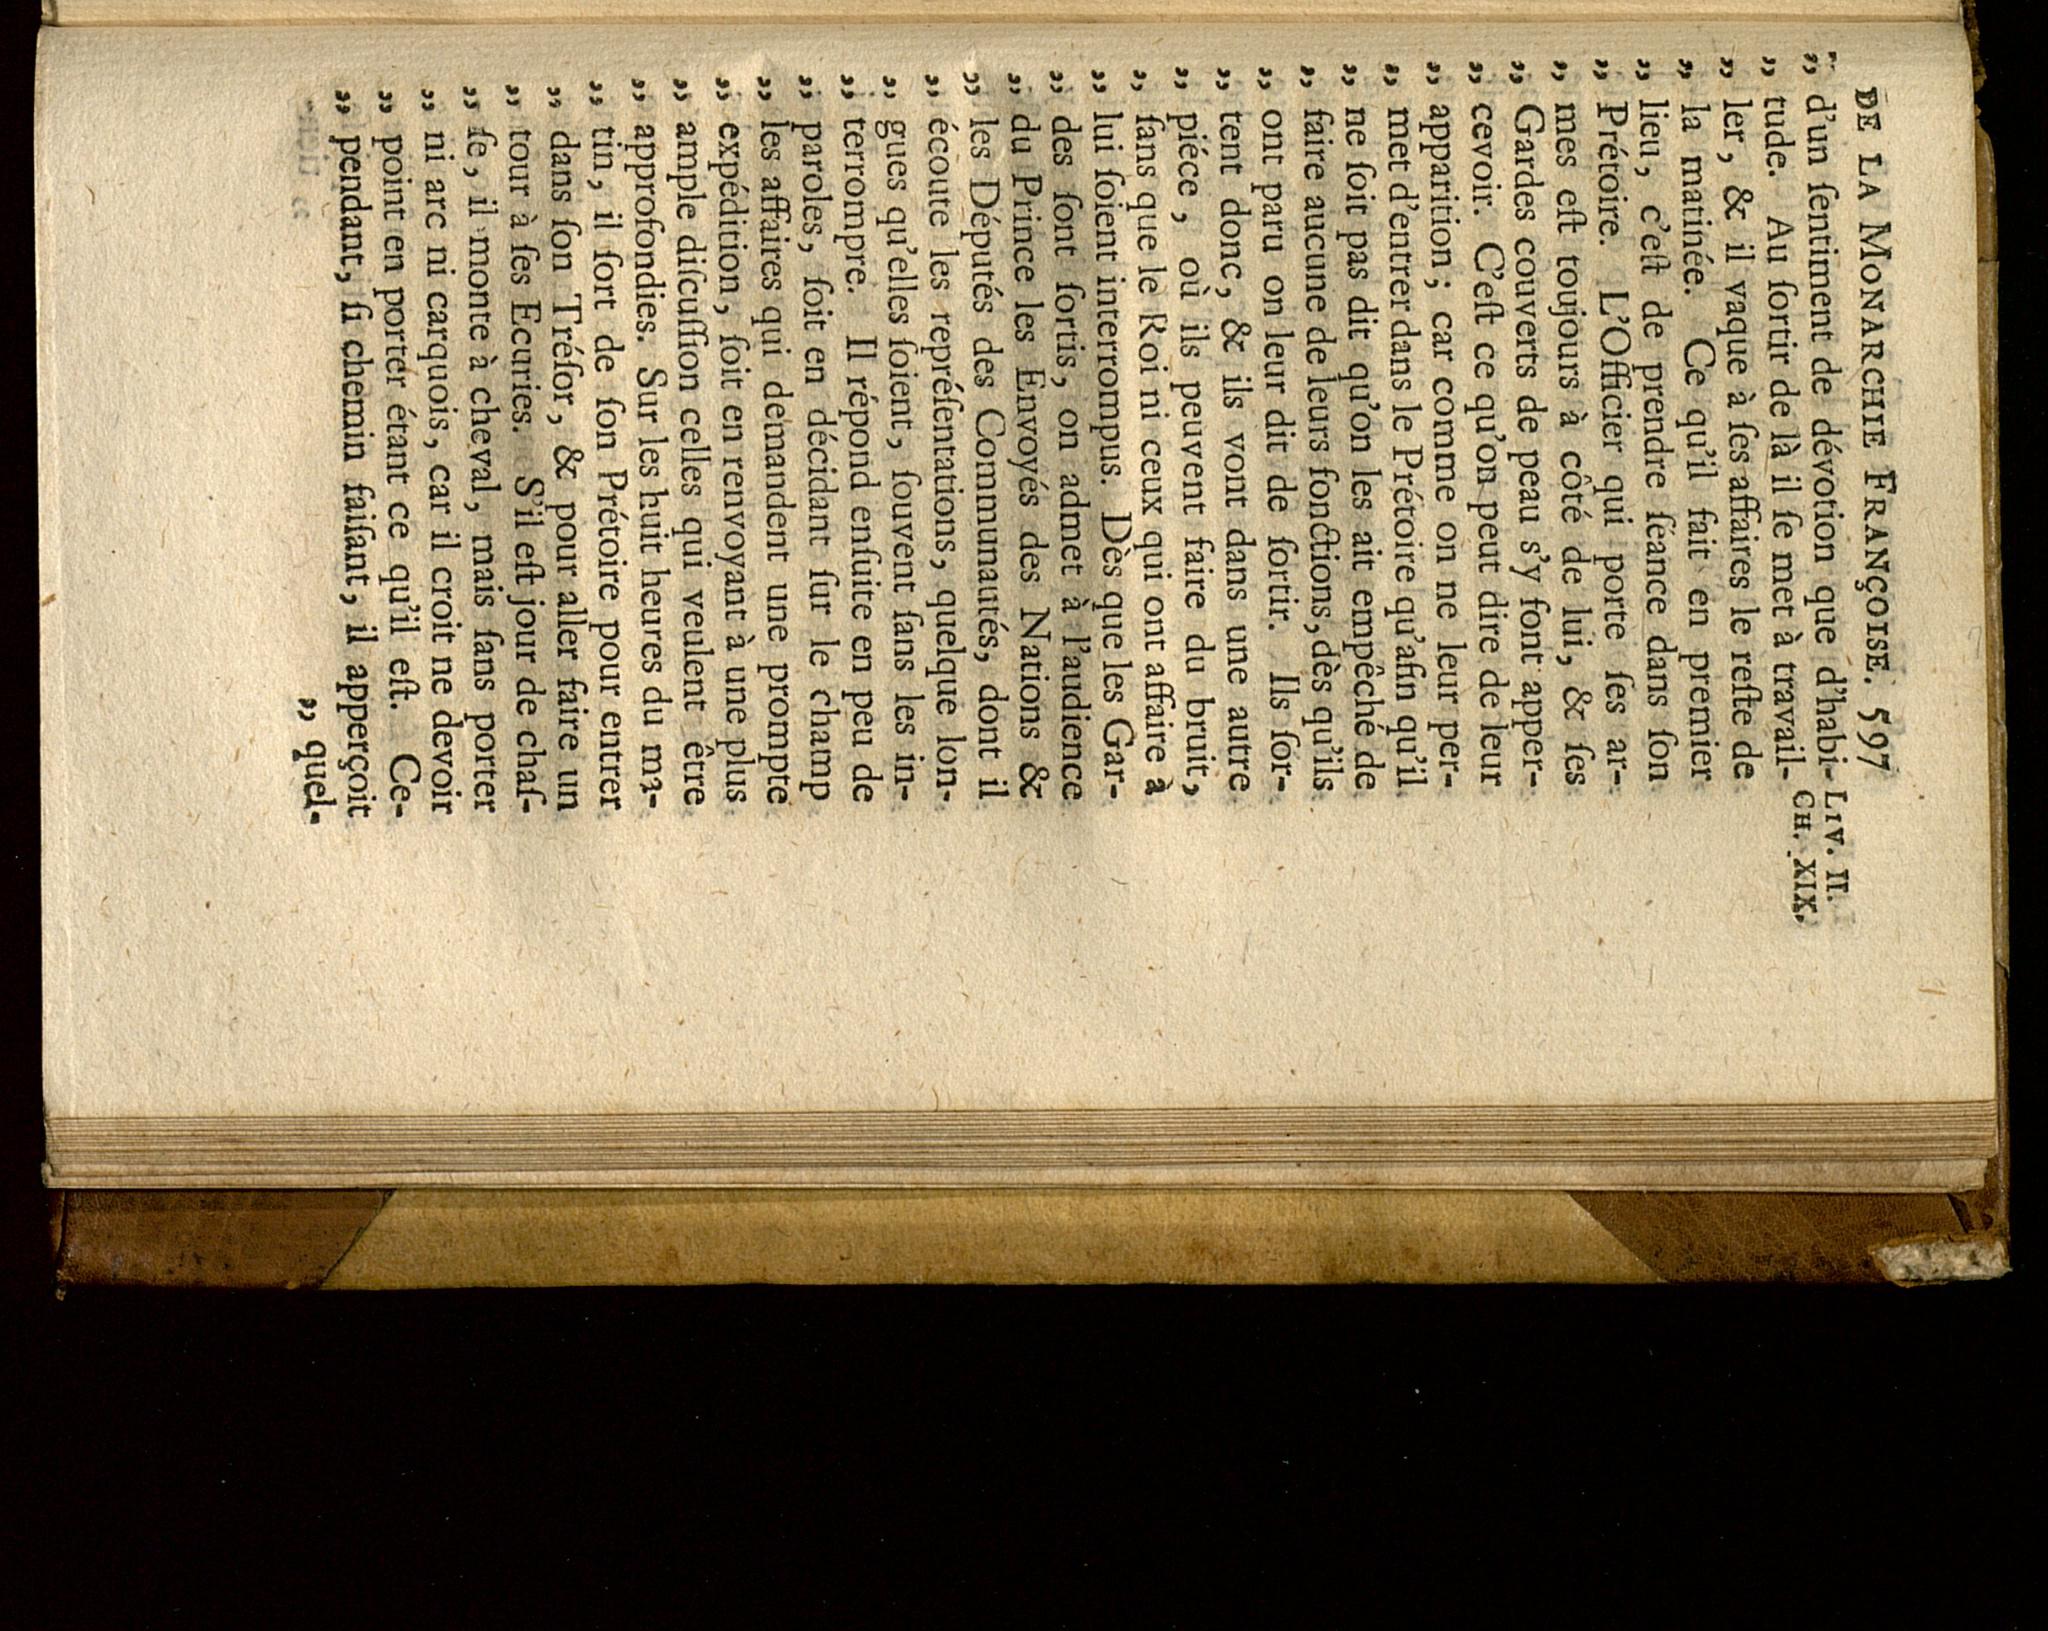 DE LA MONARCHIE FRANÇOISE. 597
„ d'un ſentiment de dévotion que d'habi-
LIV. II.
CH. XIX.
„ tude. Au ſortir de là il ſe met à travail-
„ ler, & il vaque à ſes affaires le reſte de
„ la matinée. Ce qu'il fait en premier
„ lieu, c'eſt de prendre ſéance dans ſon
„ Prétoire. L'Officier qui porte ſes ar-
„ mes eſt toujours à côté de lui, & ſes
„ Gardes couverts de peau s'y font apper-
„ cevoir. C'eſt ce qu'on peut dire de leur
„ apparition; car comme on ne leur per-
„ met d'entrer dans le Prétoire qu'afin qu'il
„ ne ſoit pas dit qu'on les ait empêché de
„ faire aucune de leurs fonctions, dès qu'ils
„ ont paru on leur dit de ſortir. Ils ſor-
„ tent donc, & ils vont dans une autre
„ piéce, où ils peuvent faire du bruit,
„ ſans que le Roi ni ceux qui ont affaire à
„ lui ſoient interrompus. Dès que les Gar-
„ des ſont ſortis, on admet à l'audience
„ du Prince les Envoyés des Nations &
„ les Députés des Communautés, dont il
„ écoute les repréſentations, quelque lon-
„ gues qu'elles ſoient, ſouvent ſans les in-
„ terrompre. Il répond enſuite en peu de
„ paroles, ſoit en décidant ſur le champ
„ les affaires qui demandent une prompte
„ expédition, ſoit en renvoyant à une plus
„ ample diſcuſſion celles qui veulent être
„ approfondies. Sur les huit heures du ma-
„ tin, il ſort de ſon Prétoire pour entrer
„ dans ſon Tréſor, & pour aller faire un
„ tour à ſes Ecuries. S'il eſt jour de chaſ-
„ ſe, il monte à cheval, mais ſans porter
„ ni arc ni carquois, car il croit ne devoir
„ point en porter étant ce qu'il eſt. Ce-
„ pendant, ſi chemin faiſant, il apperçoit
„ quel-